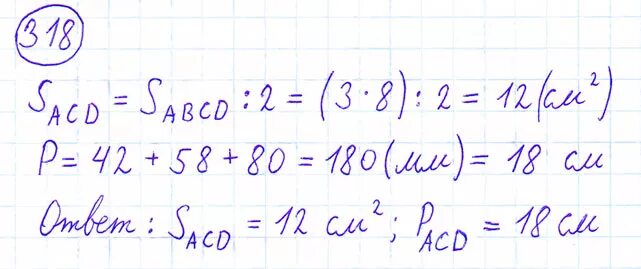 318
S_ACD = S_ABCD : 2 = (3 · 8) : 2 = 12 (см²)
P = 42 + 58 + 80 = 180 (мм) = 18 см
Ответ : S_ACD = 12 см² ; P_ACD = 18 см